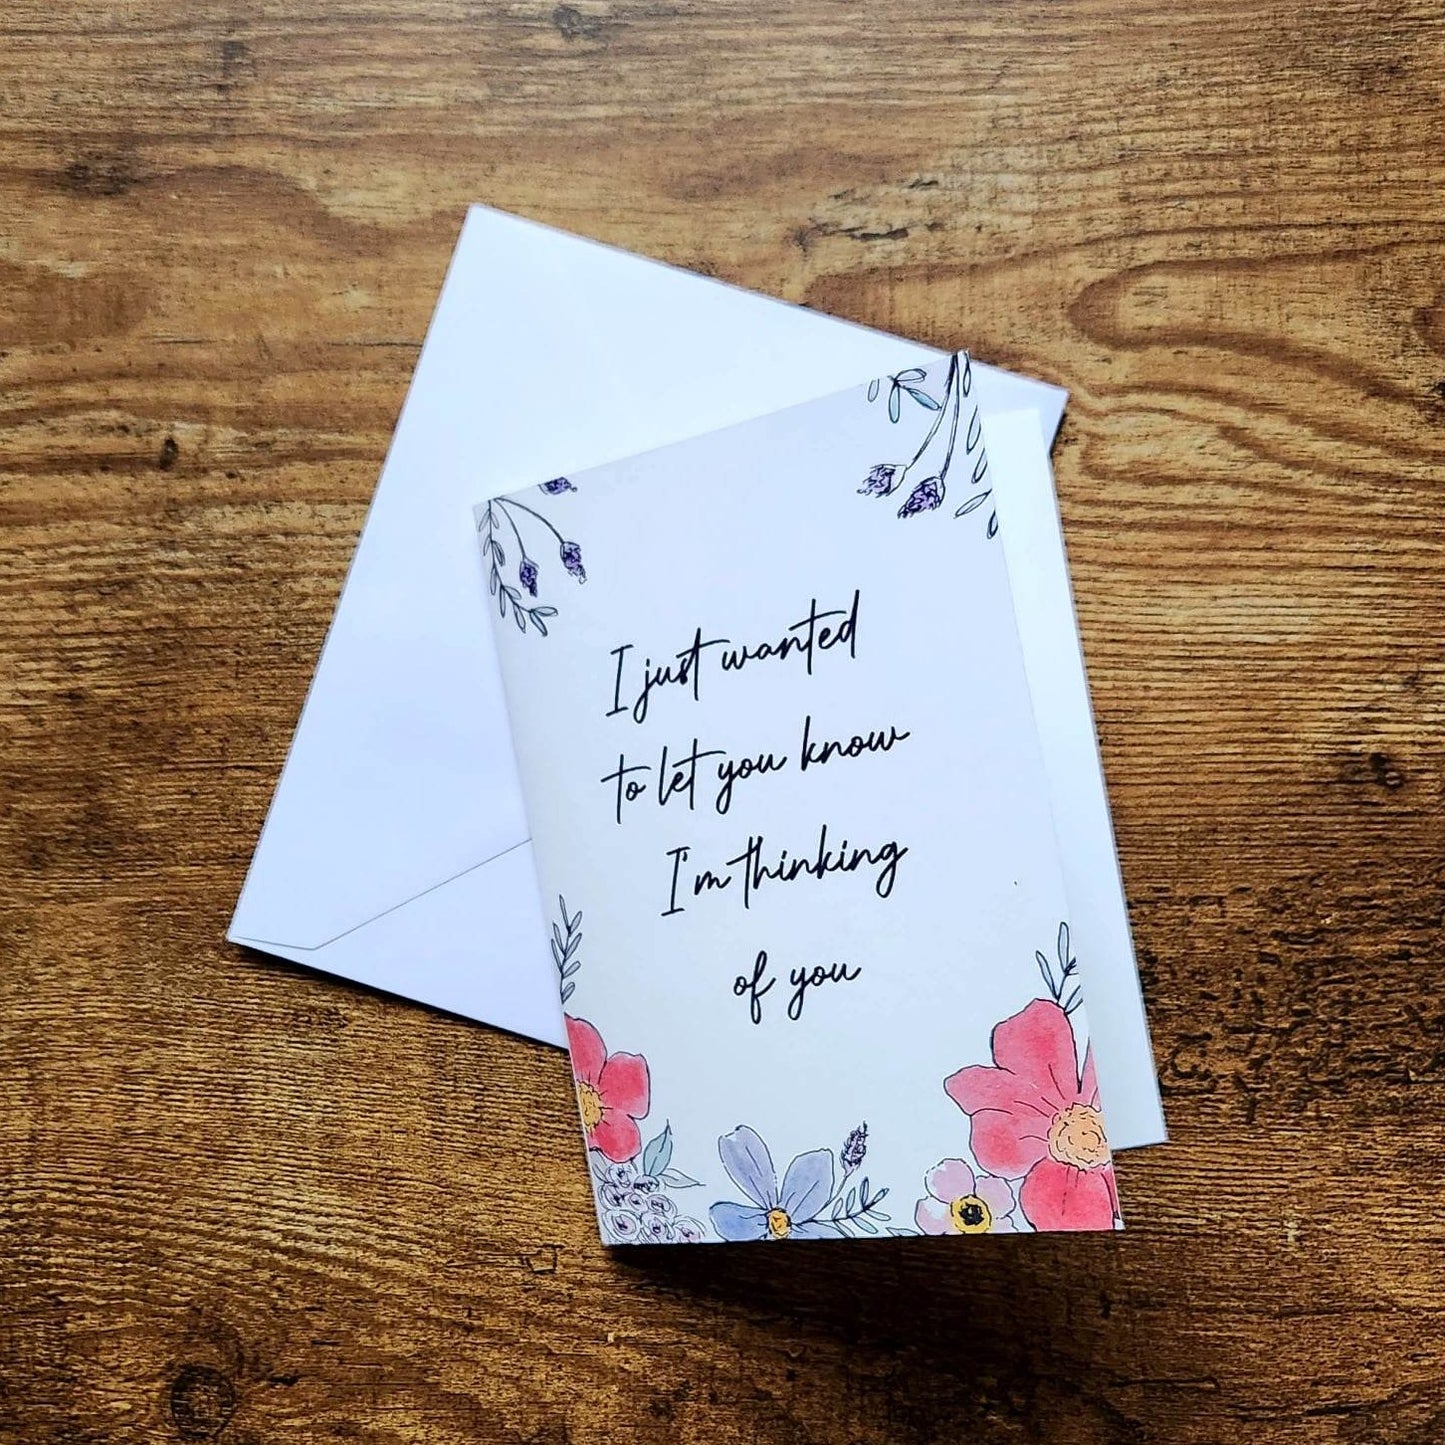 I just wanted
to let you know
I'm thinking
of you